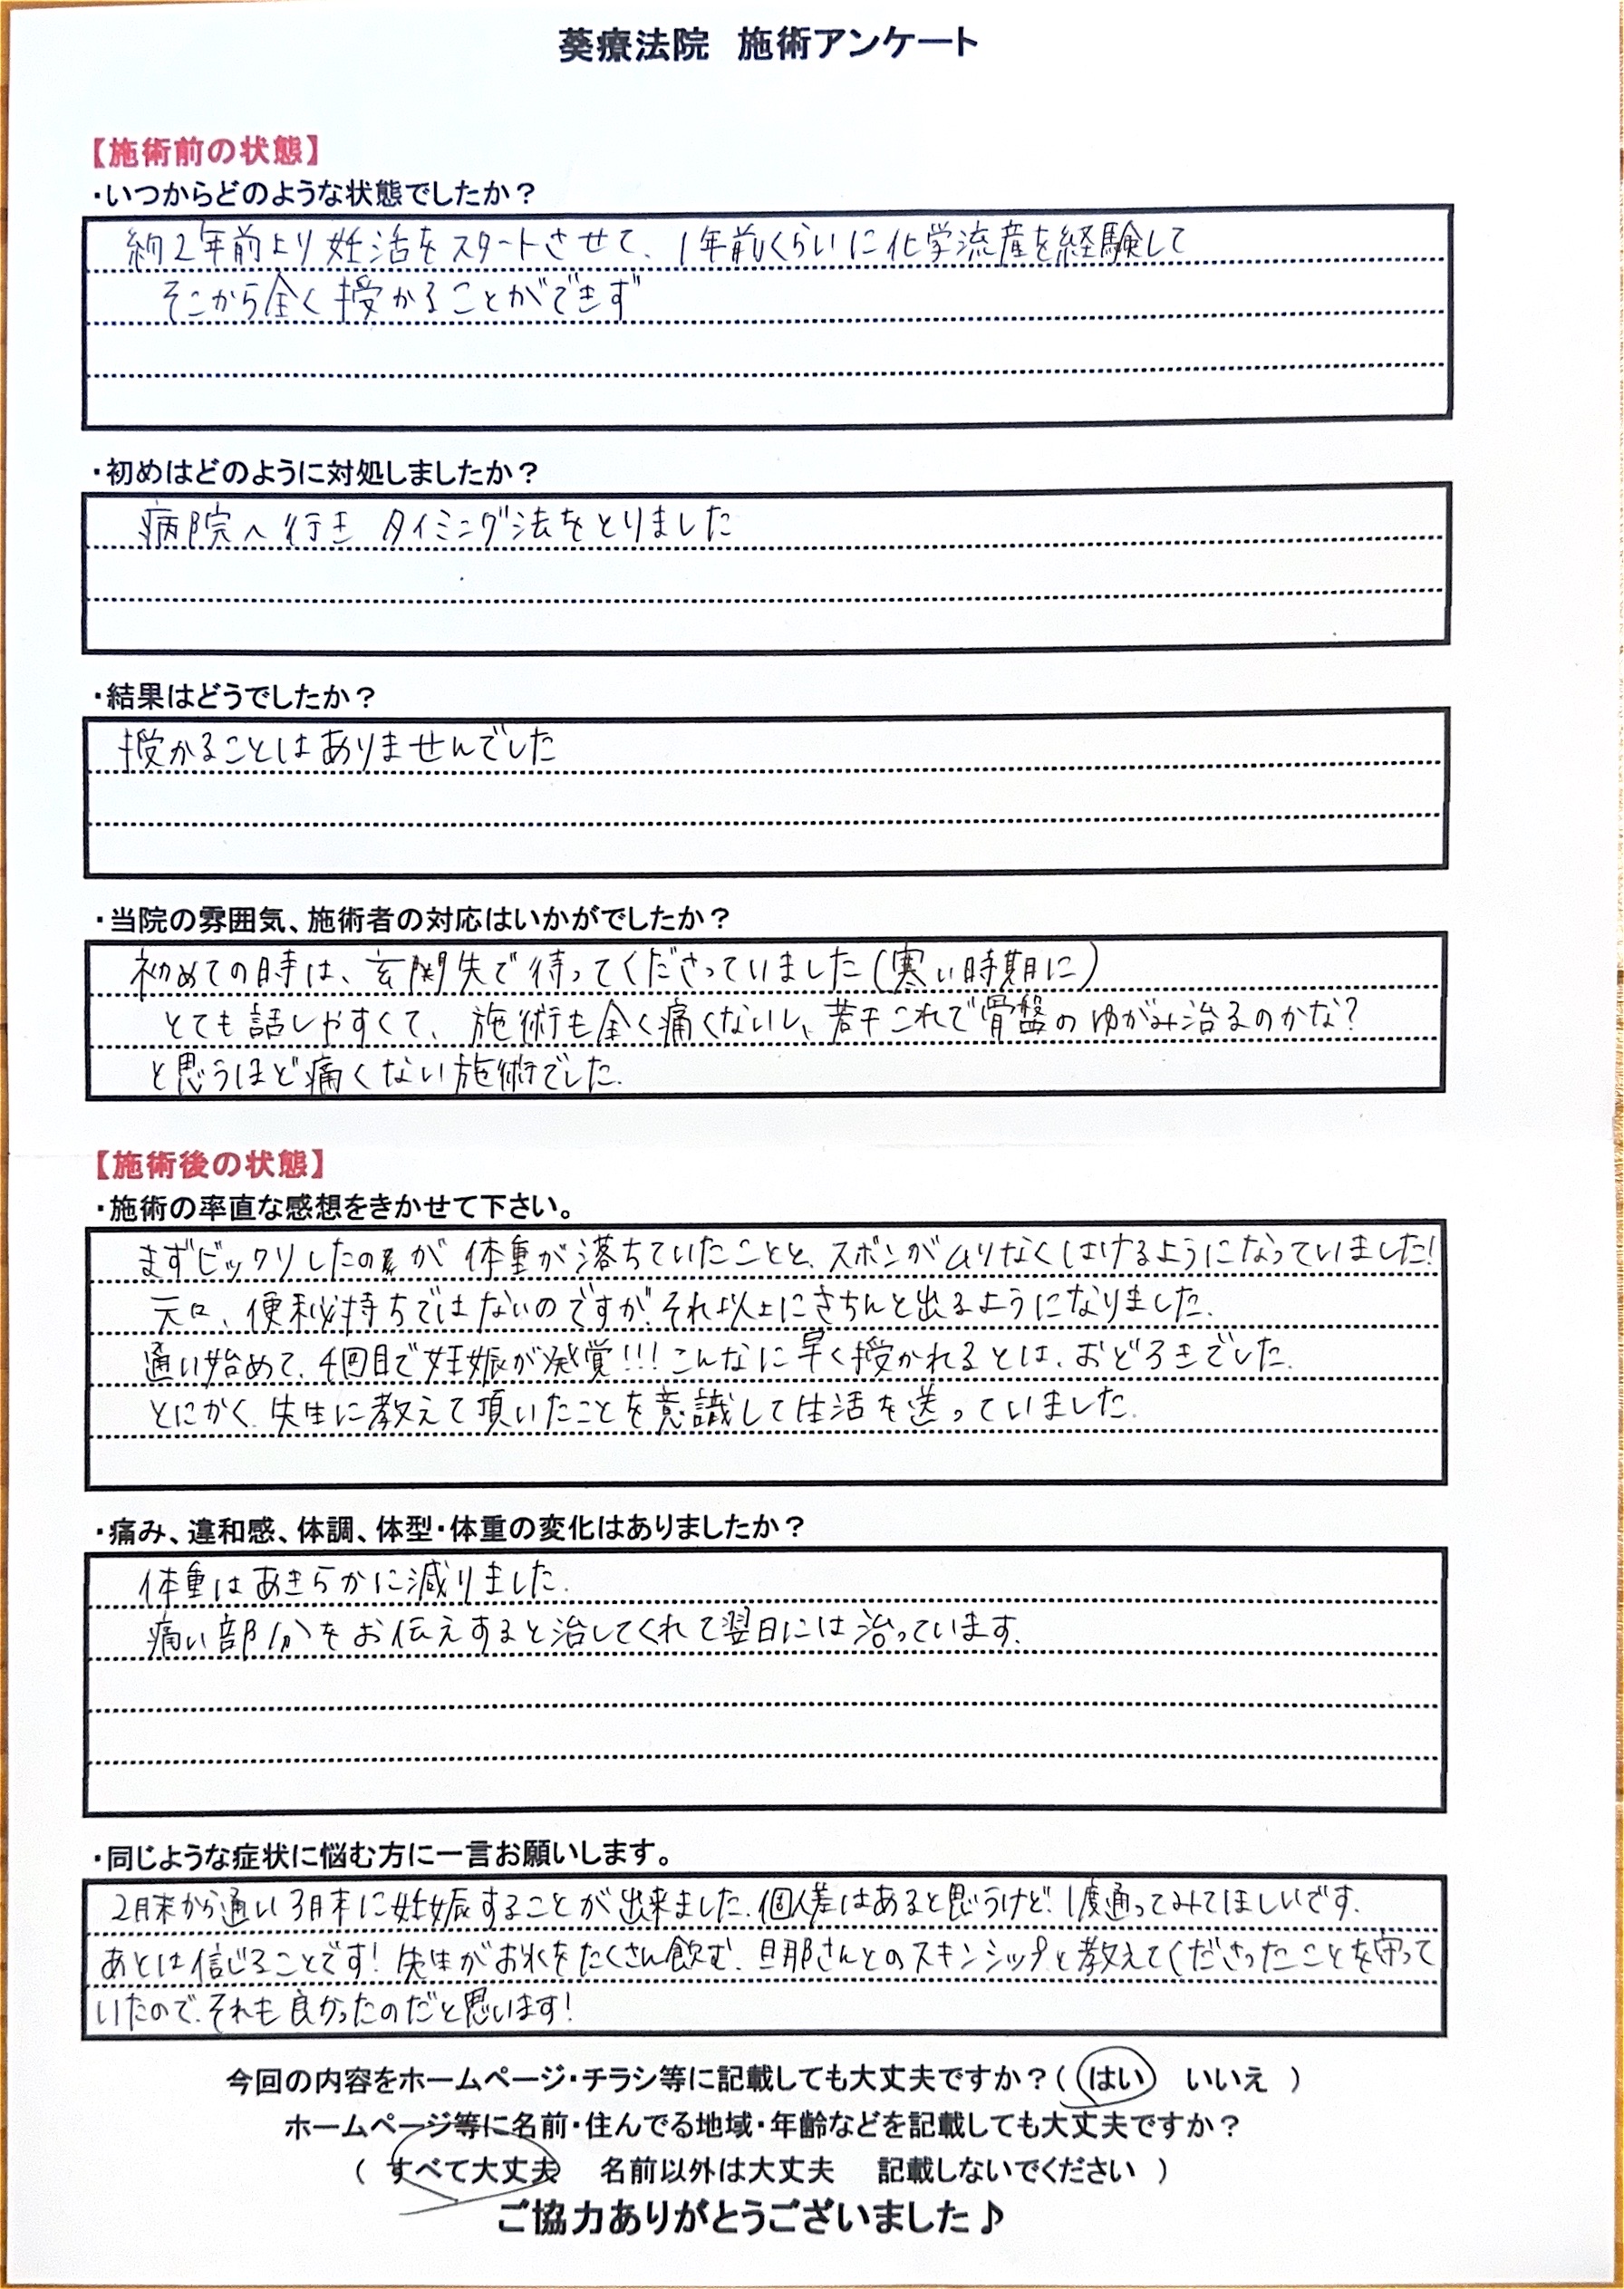 葵療法院　施術アンケート
【施術前の状態】
・いつからどのような状態でしたか？
約2年前より妊活をスタートさせて、1年前くらいに化学流産を経験して
そこから全く授かることができず
・初めはどのように対処しましたか？
病院へ行き タイミング法をとりました
・結果はどうでしたか？
授かることはありませんでした
・当院の雰囲気、施術者の対応はいかがでしたか？
初めての時は、玄関先で待ってくださっていました(寒い時期に)
とても話しやすくて、施術も全く痛くないし、若干これで骨盤のゆがみ治るのかな？
と思うほど痛くない施術でした.
【施術後の状態】
・施術の率直な感想をきかせて下さい。
まずビックリしたのが 体重が落ちていたことと、ズボンがムリなくはけるようになっていました!
元々、便秘持ちではないのですが、それ以上にきちんと出るようになりました.
通い始めて、4回目で妊娠が発覚!!!こんなに早く授かれるとは、おどろきでした.
とにかく、先生に教えて頂いたことを意識して生活を送っていました.
・痛み、違和感、体調、体型・体重の変化はありましたか？
体重はあきらかに減りました.
痛い部分をお伝えすると治してくれて翌日には治っています.
・同じような症状に悩む方に一言お願いします。
2月末から通い3月末に妊娠することが出来ました.個人差はあると思うけど、1度通ってみてほしいです.
あとは信じることです!先生がお水をたくさん飲む、旦那さんとのスキンシップと教えてくださったことを守って
いたので、それも良かったのだと思います!
今回の内容をホームページ・チラシ等に記載しても大丈夫ですか？（ はい　いいえ ）
ホームページ等に名前・住んでる地域・年齢などを記載しても大丈夫ですか？
（ すべて大丈夫　名前以外は大丈夫　記載しないでください ）
ご協力ありがとうございました♪